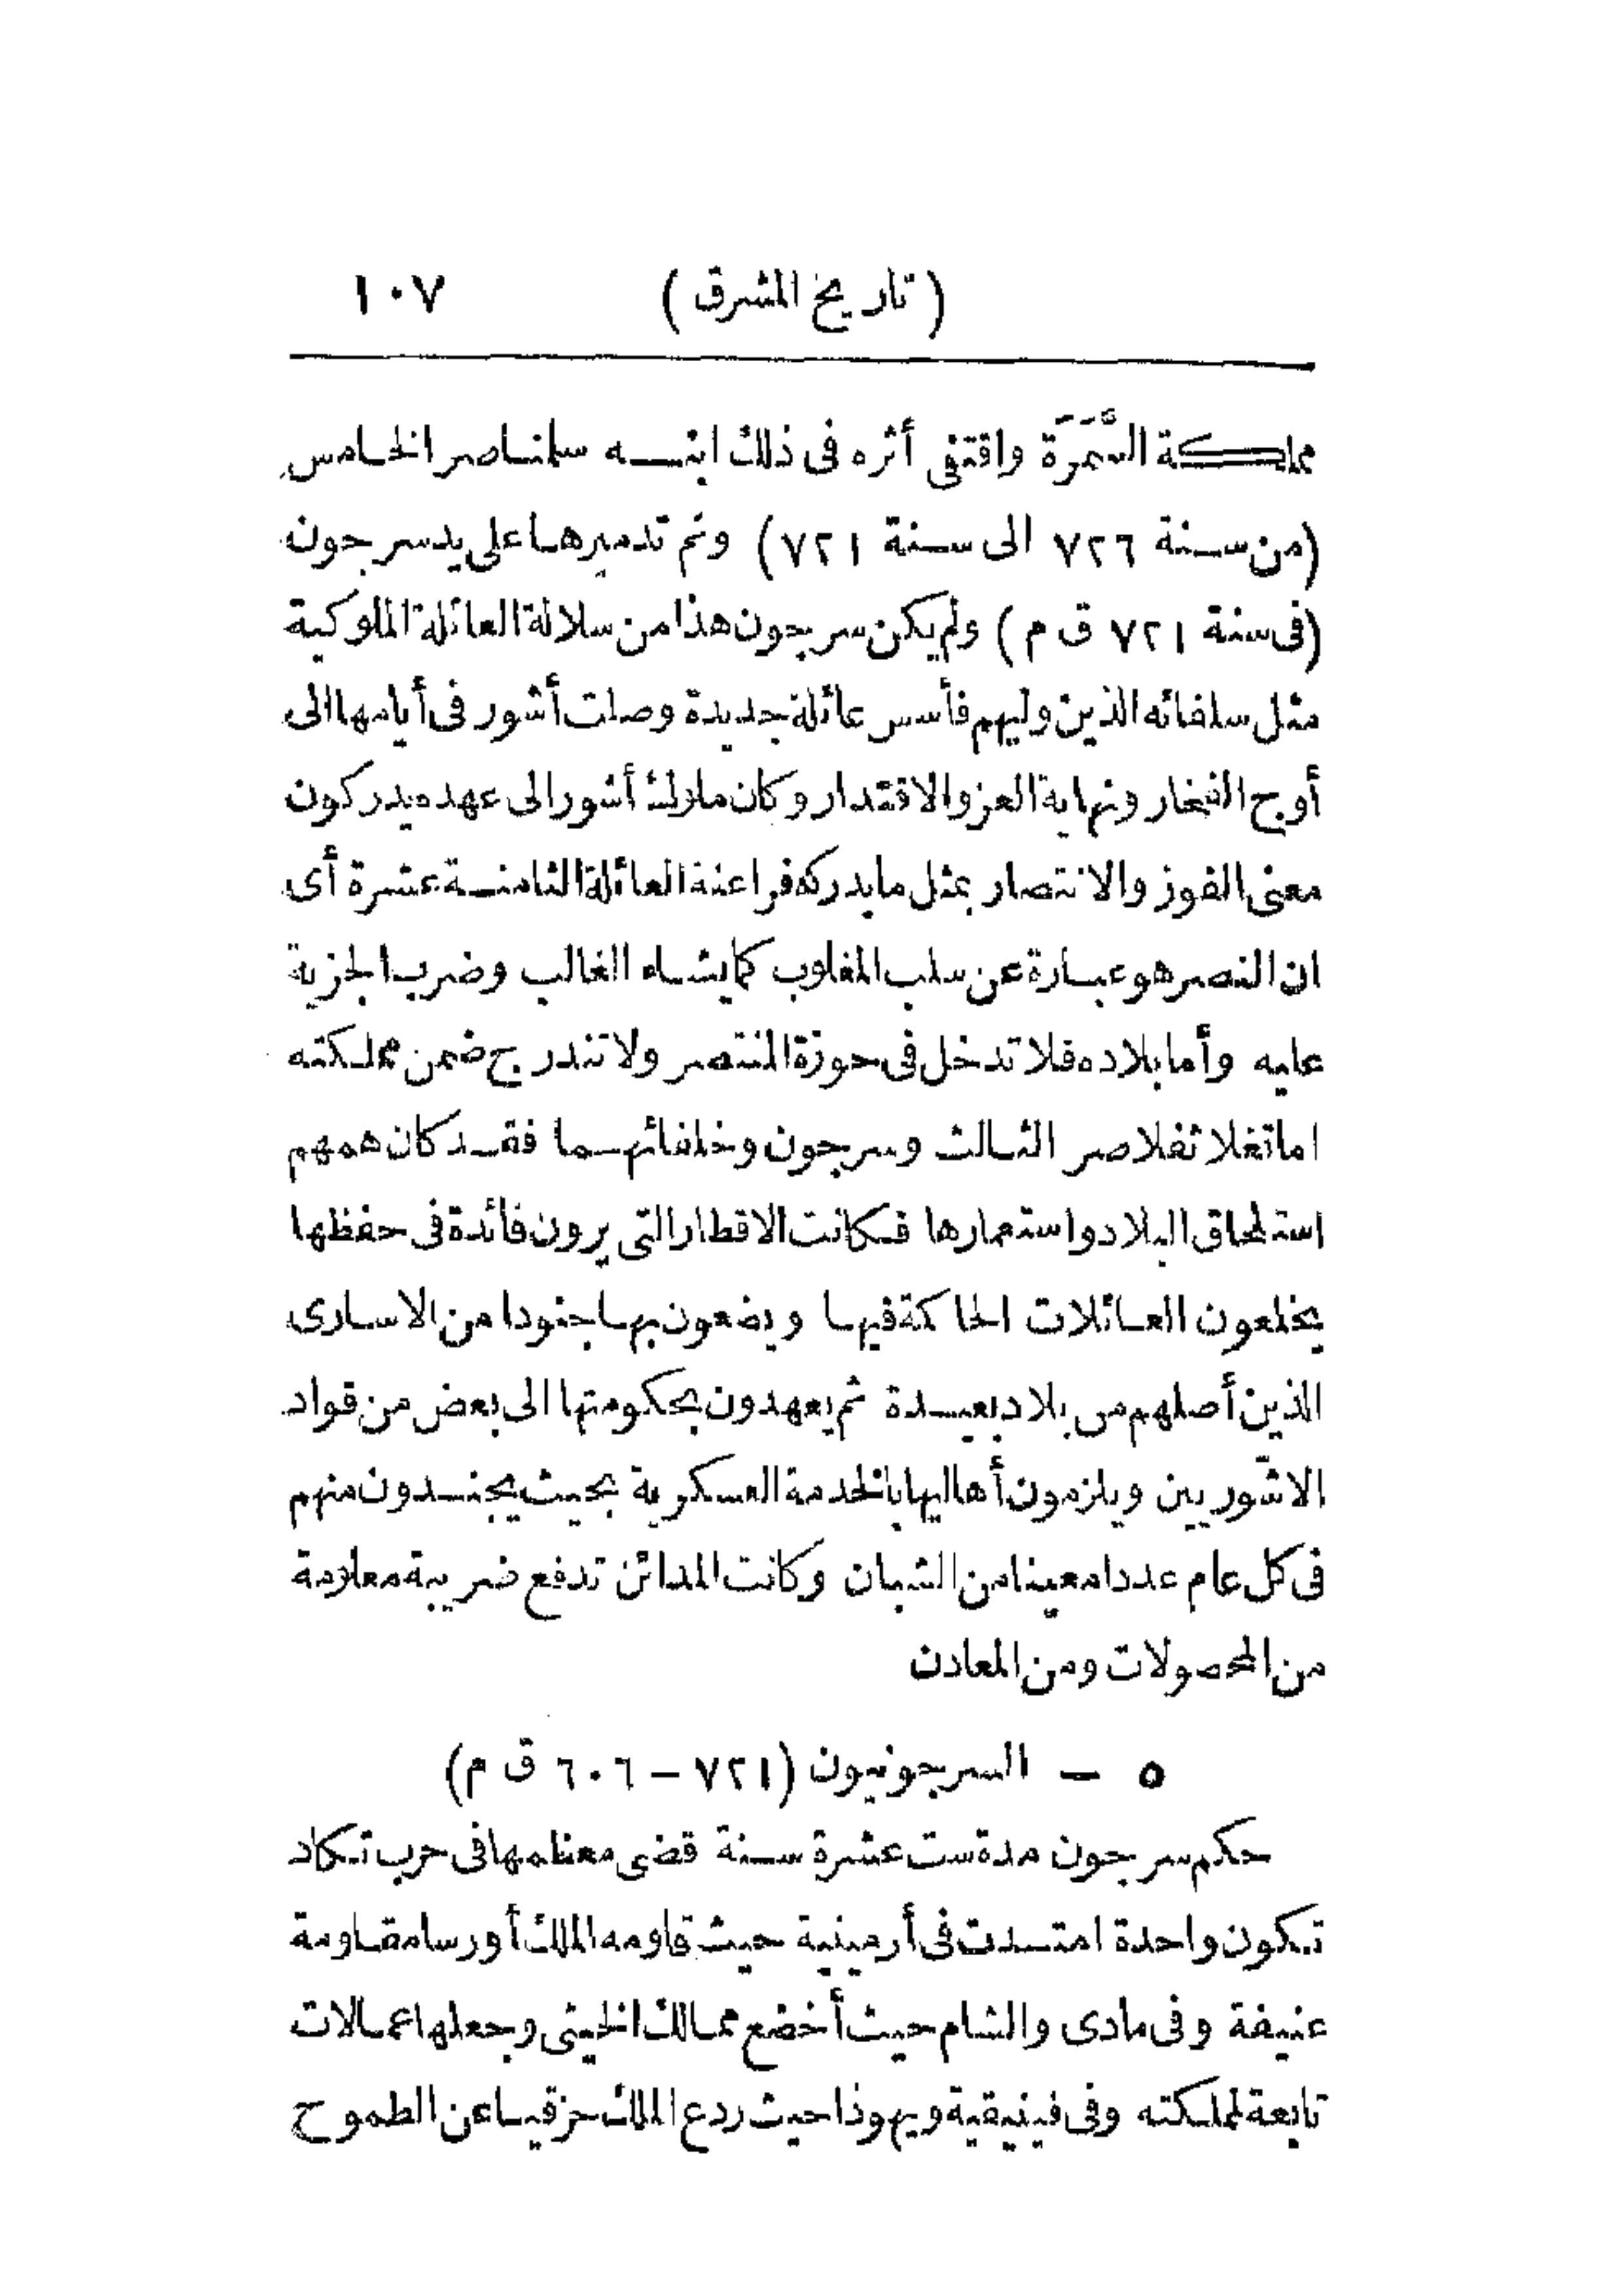 (تاريخ المشرق) ١٠٧
مملكة السَّمَرَة واقتفى أثره فى ذلك ابنه سلمناصر الخامس
(من سنة ٧٢٦ الى سنة ٧٢١) وتم تدميرها على يد سرجون
(فى سنة ٧٢١ ق م) ولم يكن سرجون هذا من سلالة العائلة الملوكية
مثل سلفائه الذين وليهم فأسس عائلة جديدة وصلت أشور فى أيامها الى
أوج الفخار ونهاية العز والاقتدار وكان ملوك أشور الى عهده يدركون
معنى الفوز والانتصار بمثل ما يدركه فراعنة العائلة الثامنة عشرة أى
ان النصر هو عبارة عن سلب المغلوب كما يشاء الغالب وضرب الجزية
عليه وأما بلاده فلا تدخل فى حوزة المنتصر ولا تندرج ضمن مملكته
اما تغلاثفلاصر الثالث وسرجون وخلفائهما فقد كان همهم
استلحاق البلاد واستعمارها فكانت الاقطار التى يرون فائدة فى حفظها
يخلعون العائلات الحاكمة فيها ويضعون بها جنودا من الاسارى
الذين أصلهم من بلاد بعيدة ثم يعهدون بحكومتها الى بعض من قواد
الاشّوريين ويلزمون أهاليها بالخدمة العسكرية بحيث يجندون منهم
فى كل عام عددا معينا من الشبان وكانت المدائن تدفع ضريبة معلومة
من المحصولات ومن المعادن
٥ – السرجونيون (٧٢١ – ٦٠٦ ق م)
حكم سرجون مدة ست عشرة سنة قضى معظمها فى حرب تكاد
تكون واحدة امتدت فى أرمينية حيث قاومه الملك أورسا مقاومة
عنيفة وفى مادى والشام حيث أخضع ممالك الخيثى وجعلها عمالات
تابعة لمملكته وفى فينيقية ويهوذا حيث ردع الملك حزقيا عن الطموح